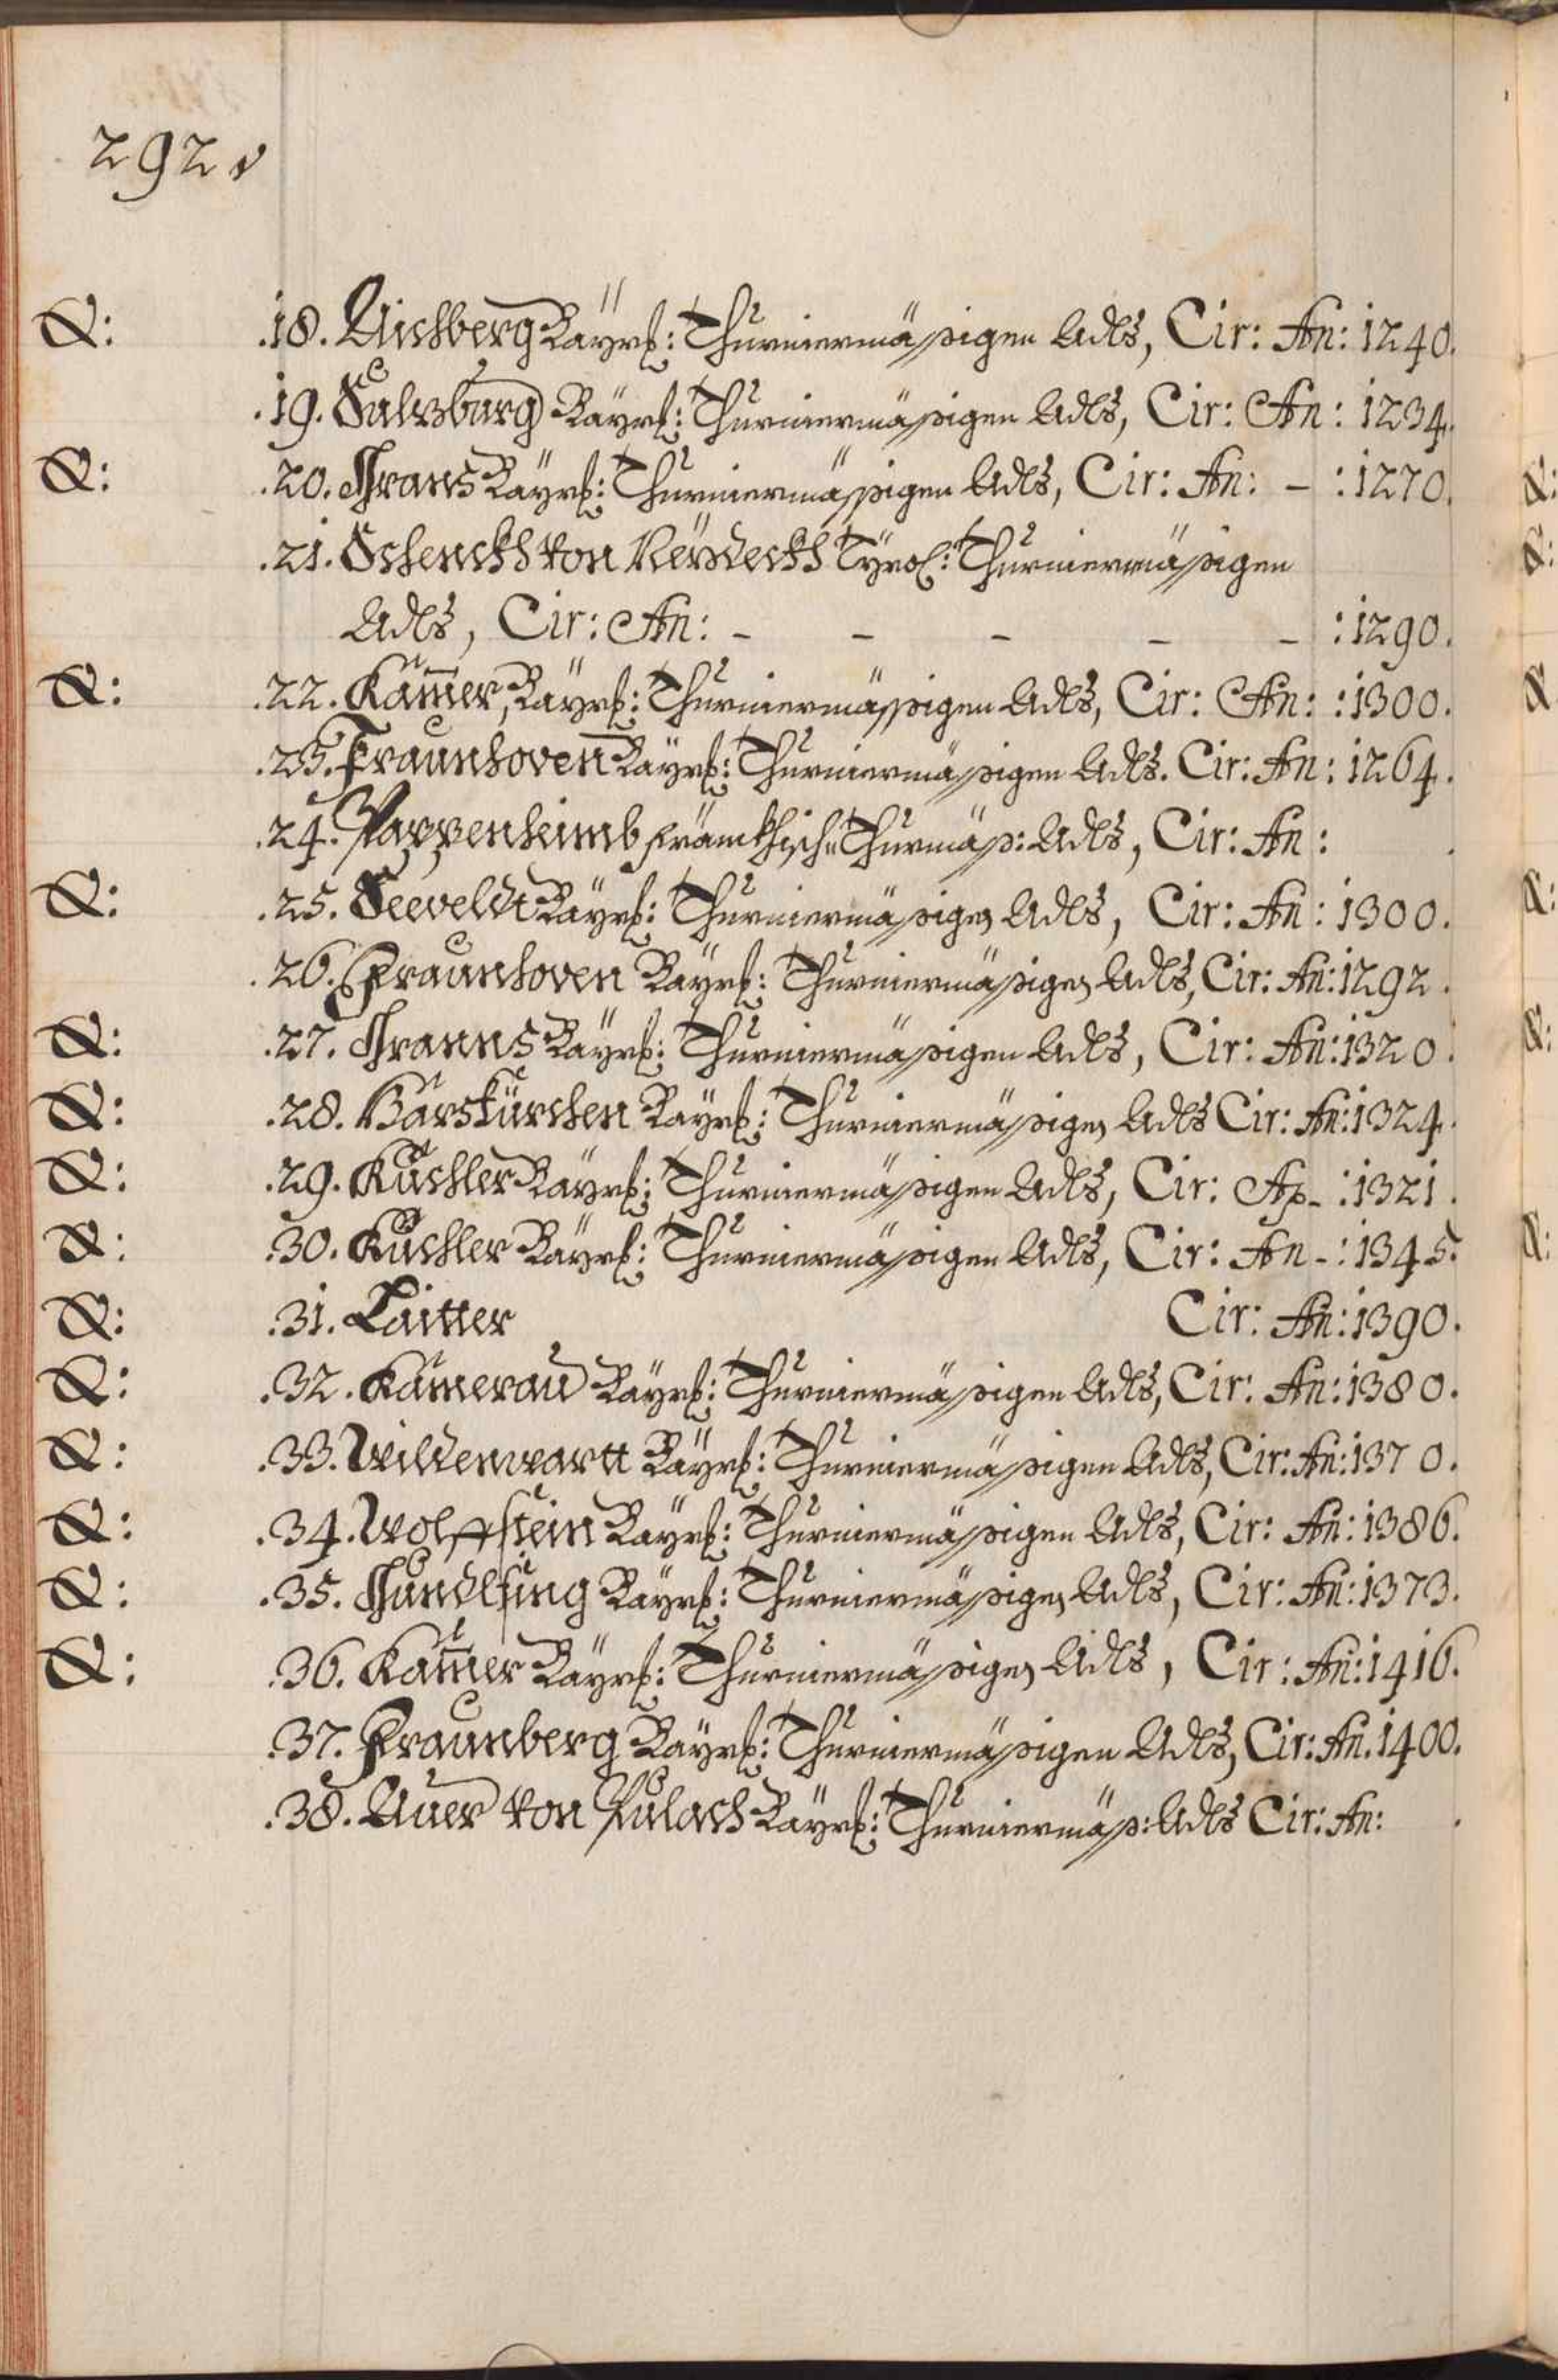 292 v
&: .18. Aichberg Bayrs: Thurniermässigen Adls, Cir: An: 1240.
.19. Salzburg Bayrs: Thurniermässigen Adls, Cir: An: 1234.
&: .20. Hrans Bayrs: Thurniermässigen Adls, Cir: An: – :1270.
.21. Schenckh von Reydeckh Tyrol: Thurniermässigen
Adls, Cir: An: – – – – – :1290.
&: .22. Kam̄er, Bayrs: Thurniermässigen Adls, Cir: An: :1300.
.23. Fraunhoven Bayrs: Thurniermässigen Adls. Cir: An: 1264.
.24. Pappenheimb Fränckhisch: Thurmäss: Adls, Cir: An: .
&: .25. Seeveldt Bayrs: Thurniermässigen Adls, Cir: An: 1300.
.26. Fraunhoven Bayrs: Thurniermässigen Adls, Cir: An: 1292.
&: .27. Hranns Bayrs: Thurniermässigen Adls, Cir: An: 1320.
&: .28. Harskürchen Bayrs: Thurniermässigen Adls Cir: An: 1324.
&: .29. Kuchler Bayrs: Thurniermässigen Adls, Cir: An– :1321.
&: .30. Kuchler Bayrs: Thurniermässigen Adls, Cir: An–: 1345.
&: .31. Laitter Cir: An: 1390.
&: .32. Kamerau Bayrs: Thurniermässigen Adls, Cir: An: 1380.
&: .33. Wildenwartt Bayrs: Thurniermässigen Adls, Cir: An: 1370.
&: .34. Wolffstein Bayrs: Thurniermässigen Adls, Cir: An: 1386.
&: .35. Hundlsing Bayrs: Thurniermässigen Adls, Cir: An: 1373.
&: .36. Kam̄er Bayrs: Thurniermässigen Adls, Cir: An: 1416.
.37. Fraunberg Bayrs: Thurniermässigen Adls, Cir: An. 1400.
.38. Auer von Pulach Bayrs: Thurniermäss: Adls Cir: An: .